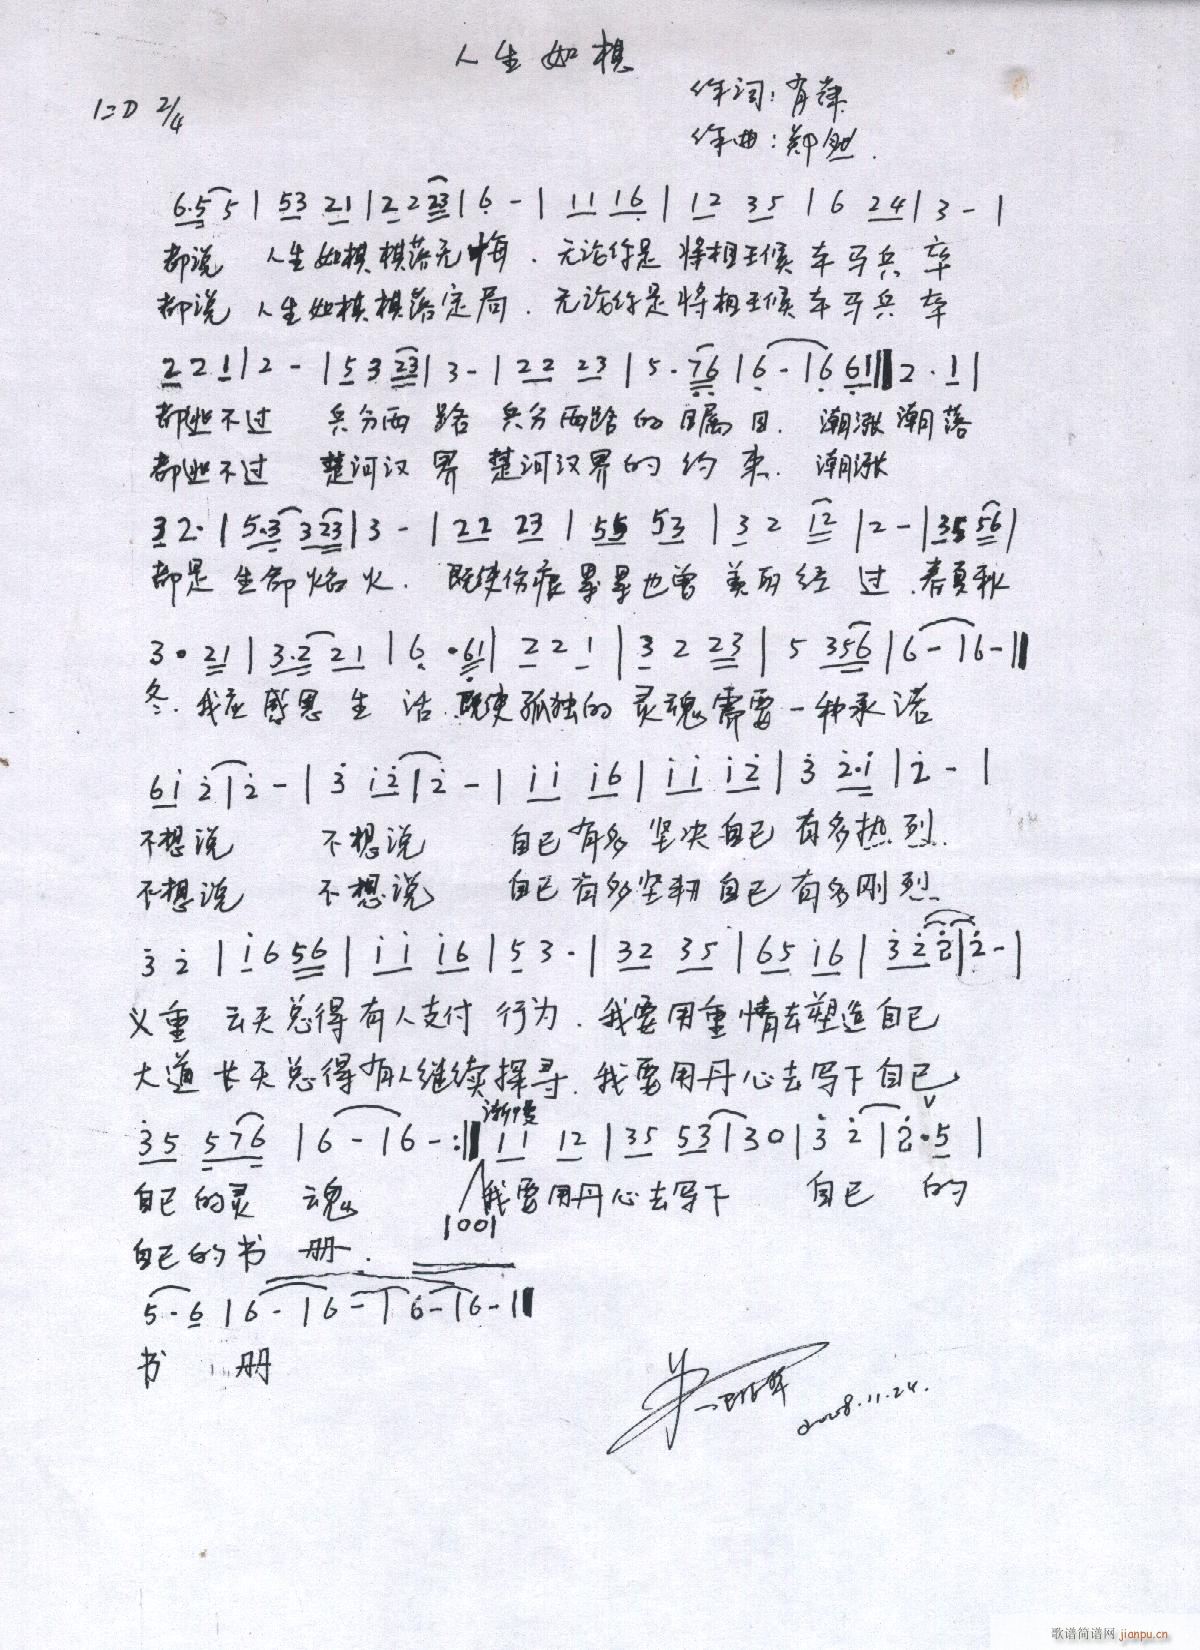 人生如棋
1=D 2/4
作词:肖
作曲:郑
6.5 5 | 53 21 | 2 2 23 | 6 - | 11 16 | 12 35 | 6 24 | 3 - |
都说 人生如棋棋落无悔. 无论你是将相王候车马兵卒
都说 人生如棋棋落定局. 无论你是将相王候车马兵卒
2 2 1 | 2 - | 5 3 23 | 3 - | 22 23 | 5 · 76 | 6 - | 6 61 ‖ 2 · 1 |
都逃不过 兵分两路 兵分两路的瞩目. 潮涨潮落
都逃不过 楚河汉界 楚河汉界的约束. 潮涨
3 2· | 5·3 3 23 | 3 - | 22 23 | 55 53 | 3 2 12 | 2 - | 35 56 |
都是生命焰火. 既使伤痕累累也曾美丽经过. 春夏秋
3 · 21 | 3·2 21 | 6 · 61 | 2 2 1 | 3 2 23 | 5 356 | 6 - | 6 - ‖
冬. 我应感恩生活. 既使孤独的灵魂需要一种承诺
6i 2̇ | 2̇ - | 3̇ i2̇ | 2̇ - | ii i6 | ii i2̇ | 3̇ 2̇·i | 2̇ - |
不想说 不想说 自己有多坚决自己有多热烈.
不想说 不想说 自己有多坚韧自己有多刚烈.
3̇ 2̇ | i 6 56 | ii i6 | 5 3 · | 32 35 | 65 i6 | 3̇ 2̇ 2̇ | 2̇ - |
义重云天总得有人支付行为. 我要用重情去塑造自己
大道长天总得有人继续探寻. 我要用丹心去写下自己
渐慢
3̇5 576 | 6 - | 6 - :‖ 11 12 | 35 53 | 30 | 3̇ 2̇ | 2̇ · 5 |
自己的灵魂 我要用丹心去写下 自己的
1001
自己的书册.
5 · 6 | 6 - | 6 - | 6 - | 6 - ‖
书册
2008.11.24.
歌谱简谱网 jianpu.cn